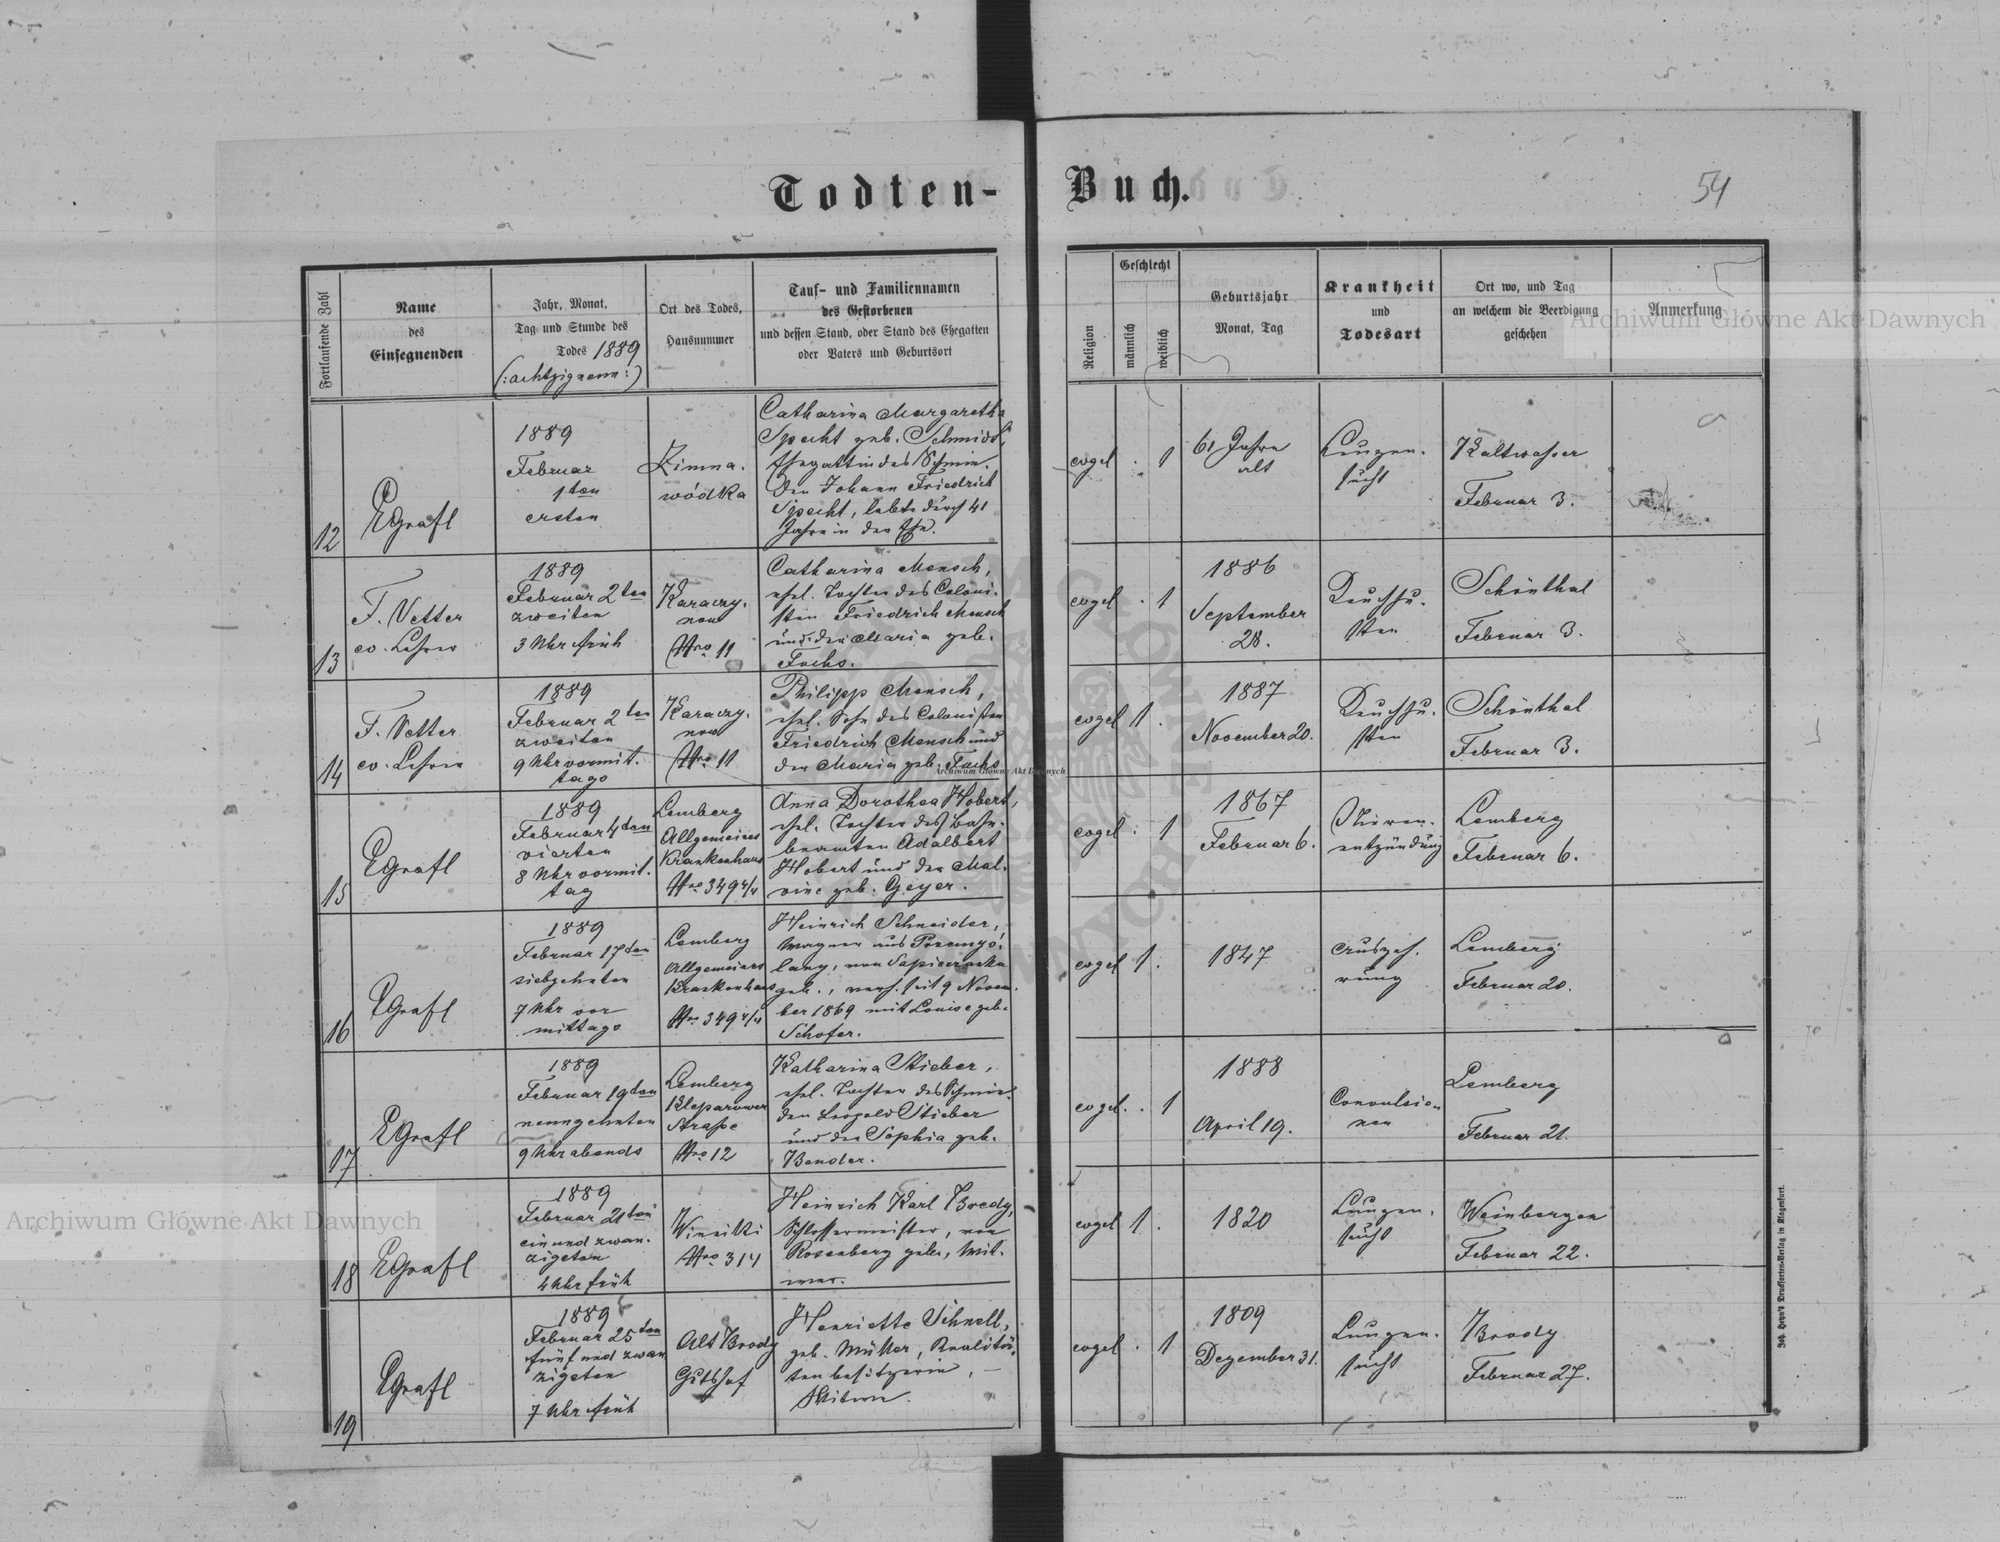 Todten-Buch.
54
Fortlaufende Zahl
Name
des
Einsegnenden
Jahr, Monat,
Tag und Stunde des
Todes 1889
(:achtzigneun:)
Ort des Todes,
Hausnummer
Tauf- und Familiennamen
des Gestorbenen
und dessen Stand, oder Stand des Ehegatten
oder Vaters und Geburtsort
Religion
Geschlecht
männlich
weiblich
Geburtsjahr
Monat, Tag
Krankheit
und
Todesart
Ort wo, und Tag
an welchem die Beerdigung
geschehen
Anmerkung
12
EGrafl
1889
Februar
1ten
ersten
Zimna.
wódka
Catharina Margaretha
Specht geb. Schmidt,
Ehegattin des Schmie.
den Johann Friedrich
Specht, lebte durch 41
Jahre in der Ehe.
evgel
. 1
61 Jahre
alt
Lungen.
sucht
Kaltwasser
Februar 3.
13
F. Vetter
ev. Lehrer
1889
Februar 2ten
zweiten
3 Uhr früh
Karaczy.
now
Nro 11
Catharina Mensch,
ehel. Tochter des Coloni.
sten Friedrich Mensch
und der Maria geb.
Fuchs.
evgel
. 1
1886
September
28.
Keuchhu.
sten
Schönthal
Februar 3.
14
F. Vetter
ev. Lehrer
1889
Februar 2ten
zweiten
9 Uhr vormit.
tags
Karaczy.
now
Nro 11
Philipp Mensch,
ehel. Sohn des Colonisten
Friedrich Mensch und
der Maria geb. Fuchs
evgel
1 .
1887
November 20.
Keuchhu.
sten
Schönthal
Februar 3.
15
EGrafl
1889
Februar 4ten
vierten
8 Uhr vormit.
tag
Lemberg
Allgemeines
Krankenhaus
Nro 349 4/4
Anna Dorothea Hobert,
ehel. Tochter des Bahn.
beamten Adalbert
Hobert und der Mal.
vine geb. Geyer.
evgel
. 1
1867
Februar 6.
Nieren.
entzündung
Lemberg
Februar 6.
16
EGrafl
1889
Februar 17ten
siebzehnten
7 Uhr vor
mittags
Lemberg
Allgemeines
Krankenhaus
Nro 349 4/4
Heinrich Schneider,
Wagner aus Przemyś.
lany, von
geb., verh. seit 9 Novem.
ber 1869 mit Louise geb.
Schofer.
evgel
1 .
1847
Auszeh.
rung
Lemberg
Februar 20.
17
EGrafl
1889
Februar 19ten
neunzehnten
9 Uhr abends
Lemberg
Kleparower
Strasse
Nro 12
Katharina Stieber,
ehel. Tochter des Schmie.
den Leopold Stieber
und der Sophia geb.
Bender.
evgel.
. 1
1888
April 19.
Convulsio.
nen
Lemberg
Februar 21.
18
EGrafl
1889
Februar 21ten
ein und zwan.
zigsten
4 Uhr früh
Winniki
Nro 314
Heinrich Karl Bredy,
Schlossermeister, von
Rosenberg geb., Wit.
wer.
evgel
1 .
1820
Lungen.
sucht
Weinbergen
Februar 22.
19
EGrafl
1889
Februar 25ten
fünf und zwan
zigsten
7 Uhr früh
Alt Brody
Gutshof
Henriette Schnell,
geb. Müller, Realitä.
tenbesitzerin, –
Witwe.
evgel
. 1
1809
Dezember 31.
Lungen.
sucht
Brody
Februar 27.
Joh. Heyn's Drucksorten-Verlag in Klagenfurt.
Archiwum Główne Akt Dawnych
Archiwum Główne Akt Dawnych
Archiwum Główne Akt Dawnych